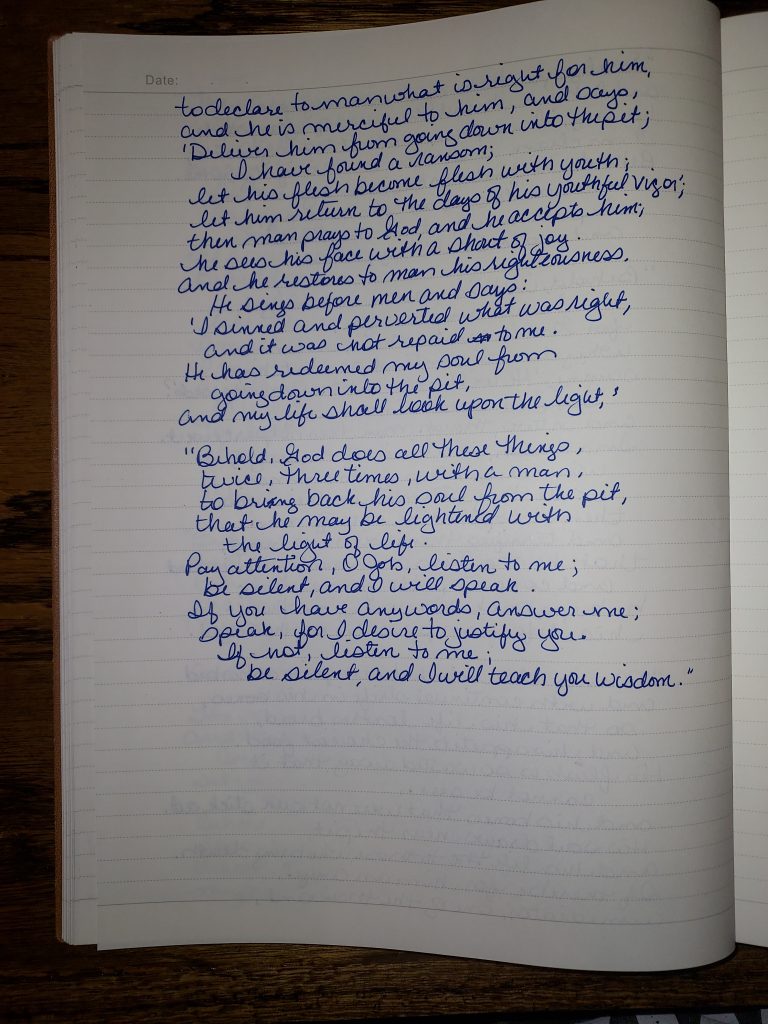 Date:
to declare to man what is right for him,
and he is merciful to him, and says,
'Deliver him from going down into the pit;
I have found a ransom;
let his flesh become flesh with youth;
let him return to the days of his youthful vigor';
then man prays to God, and he accepts him;
he sees his face with a shout of joy.
and he restores to man his righteousness.
He sings before men and says:
'I sinned and perverted what was right,
and it was not repaid to me.
He has redeemed my soul from
going down into the pit,
and my life shall look upon the light,'
"Behold, God does all these things,
twice, three times, with a man,
to bring back his soul from the pit,
that he may be lightened with
the light of life.
Pay attention, O Job, listen to me;
be silent, and I will speak.
If you have any words, answer me;
Speak, for I desire to justify you.
If not, listen to me;
be silent, and I will teach you wisdom."